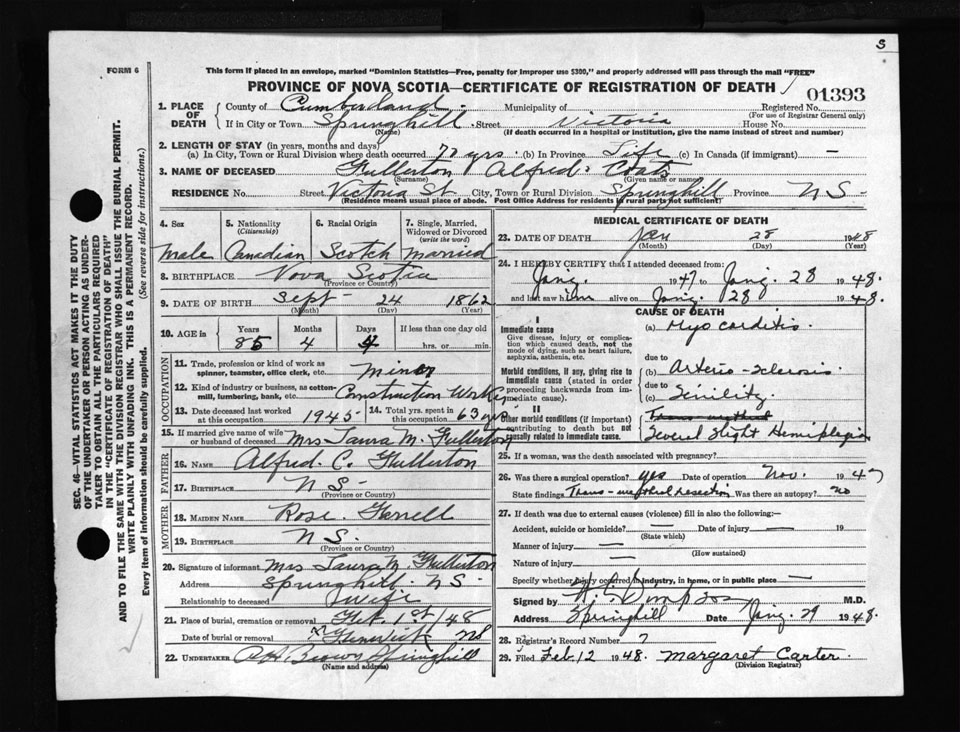 S
FORM 6
This form if placed in an envelope, marked "Dominion Statistics—Free, penalty for improper use $300," and properly addressed will pass through the mail "FREE"
PROVINCE OF NOVA SCOTIA—CERTIFICATE OF REGISTRATION OF DEATH
01393
1. PLACE OF DEATH
County of Cumberland Municipality of Registered No.
(For use of Registrar General only)
If in City or Town Springhill Street Victoria House No.
(Name) (If death occurred in a hospital or institution, give the name instead of street and number)
2. LENGTH OF STAY (in years, months and days)
(a) In City, Town or Rural Division where death occurred 70 yrs. (b) In Province Life (c) In Canada (if immigrant) —
3. NAME OF DECEASED Fullerton Alfred Coats
(Surname) (Given name or names)
RESIDENCE No. Street Victoria St City, Town or Rural Division Springhill Province NS
(Residence means usual place of abode. Post Office Address for residents in rural parts not sufficient)
4. Sex
Male
5. Nationality (Citizenship)
Canadian
6. Racial Origin
Scotch
7. Single, Married, Widowed or Divorced (write the word)
Married
8. BIRTHPLACE Nova Scotia
(Province or Country)
9. DATE OF BIRTH Sept 24 1862
(Month) (Day) (Year)
10. AGE in Years 85 Months 4 Days 4 If less than one day old
hrs. or min.
OCCUPATION
11. Trade, profession or kind of work as spinner, teamster, office clerk, etc. miner
12. Kind of industry or business, as cotton-mill, lumbering, bank, etc. Construction Works
13. Date deceased last worked at this occupation 1945 14. Total yrs. spent in this occupation 63 yrs
15. If married give name of wife or husband of deceased Mrs Laura M. Fullerton
FATHER
16. NAME Alfred. C. Fullerton
17. BIRTHPLACE N S
(Province or Country)
MOTHER
18. MAIDEN NAME Rose Ferrell
19. BIRTHPLACE N S.
(Province or Country)
20. Signature of informant Mrs Laura M. Fullerton
Address Springhill N S
Relationship to deceased Wife
21. Place of burial, cremation or removal Feb. 1st/48
Date of burial or removal
22. UNDERTAKER Brown Springhill
(Name and address)
MEDICAL CERTIFICATE OF DEATH
23. DATE OF DEATH Jan 28 1948
(Month) (Day) (Year)
24. I HEREBY CERTIFY that I attended deceased from:
Jany. 1947 to Jany. 28 1948.
and last saw him alive on Jany. 28 1948.
CAUSE OF DEATH
I
Immediate cause
Give disease, injury or complication which caused death, not the mode of dying, such as heart failure, asphyxia, asthenia, etc.
(a) Myocarditis.
due to
Morbid conditions, if any, giving rise to immediate cause (stated in order proceeding backwards from immediate cause).
(b) Arterio-sclerosis
due to
(c) Senility.
II
Other morbid conditions (if important) contributing to death but not causally related to immediate cause.
Several slight Hemiplegia
25. If a woman, was the death associated with pregnancy?
26. Was there a surgical operation? yes Date of operation Nov. 1947
State findings Trans-urethral resection Was there an autopsy? no
27. If death was due to external causes (violence) fill in also the following:—
Accident, suicide or homicide? — Date of injury — 19
(State which)
Manner of injury —
(How sustained)
Nature of injury —
Specify whether injury occurred in industry, in home, or in public place —
Signed by M.D.
Address Springhill Date Jany. 29 1948.
28. Registrar's Record Number 7
29. Filed Feb. 12 1948. Margaret Carter.
(Division Registrar)
SEC. 46—VITAL STATISTICS ACT MAKES IT THE DUTY OF THE UNDERTAKER OR PERSON ACTING AS UNDERTAKER TO OBTAIN ALL THE PARTICULARS REQUIRED IN THE "CERTIFICATE OF REGISTRATION OF DEATH" AND TO FILE THE SAME WITH THE DIVISION REGISTRAR WHO SHALL ISSUE THE BURIAL PERMIT.
WRITE PLAINLY WITH UNFADING INK. THIS IS A PERMANENT RECORD.
Every item of information should be carefully supplied. (See reverse side for instructions.)